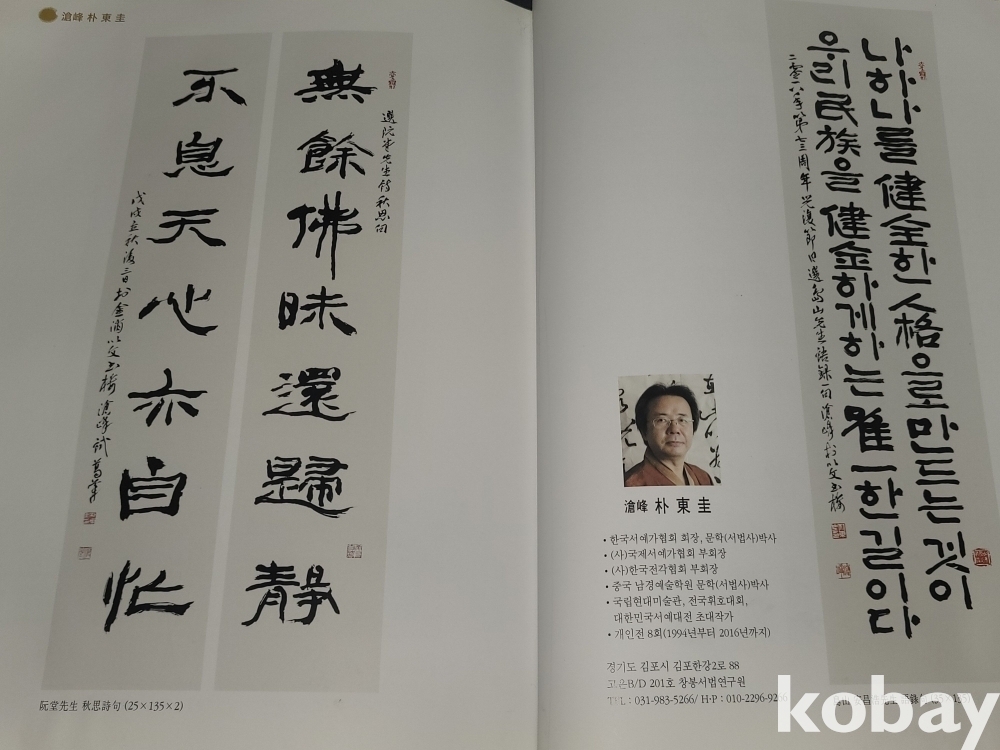 滄峰 朴東圭
無餘佛昧還歸靜
不息天心亦自忙
戊戌立秋後三日於金浦以文書樓 滄峰
阮堂先生 秋思詩句 (25×135×2)
나 하나를 健全한 人格으로 만드는 것이
우리 民族을 健全하게 하는 唯一한 길이다
二零一八年第七三周年光復節日選島山先生語錄一句滄峰於以文書樓
滄峰 朴東圭
• 한국서예가협회 회장, 문학(서법사)박사
• (사)국제서예가협회 부회장
• (사)한국전각협회 부회장
• 중국 남경예술학원 문학(서법사)박사
• 국립현대미술관, 전국휘호대회,
대한민국서예대전 초대작가
• 개인전 8회(1994년부터 2016년까지)
경기도 김포시 김포한강2로 88
고운B/D 201호 창봉서법연구원
TEL : 031-983-5266/ H·P : 010-2296-9266
kobay